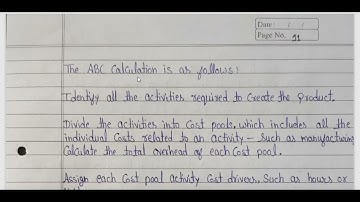 Date: / /
Page No. 91
The ABC Calculation is as follows:
Identify all the activities required to Create the Product.
Divide the activities into Cost pools, which includes all the
individual Costs related to an activity – Such as manufacturing
Calculate the total overhead of each Cost pool.
Assign each Cost pool activity Cost drivers, Such as hours or